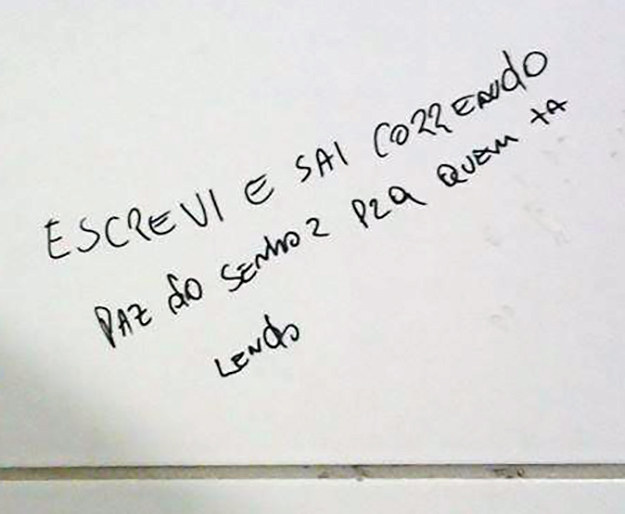 ESCREVI E SAI CORRENDO
PAZ DO SENHOR PRA QUEM TA
LENDO